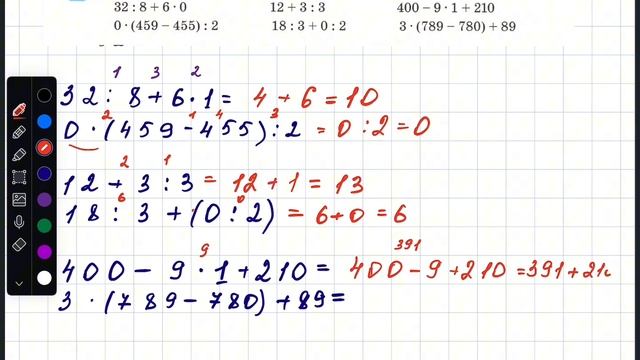 32 : 8 + 6 · 0 12 + 3 : 3 400 − 9 · 1 + 210
0 · (459 − 455) : 2 18 : 3 + 0 : 2 3 · (789 − 780) + 89
1 3 2
32 : 8 + 6 · 1 = 4 + 6 = 10
2 1 4 3
0 · (459 − 455) : 2 = 0 : 2 = 0
2 1
12 + 3 : 3 = 12 + 1 = 13
6 0
18 : 3 + (0 : 2) = 6 + 0 = 6
9 391
400 − 9 · 1 + 210 = 400 − 9 + 210 = 391 + 21
3 · (789 − 780) + 89 =